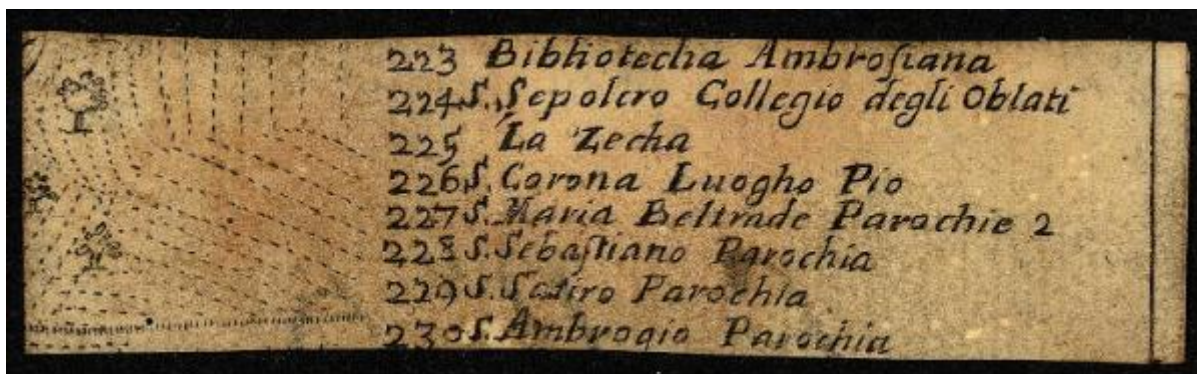 223 Bibliotecha Ambroſiana
224 S. Sepolcro Collegio degli Oblati
225 La Zecha
226 S. Corona Luogho Pio
227 S. Maria Beltrade Parochie 2
228 S. Sebaſtiano Parochia
229 S. Satiro Parochia
230 S. Ambrogio Parochia